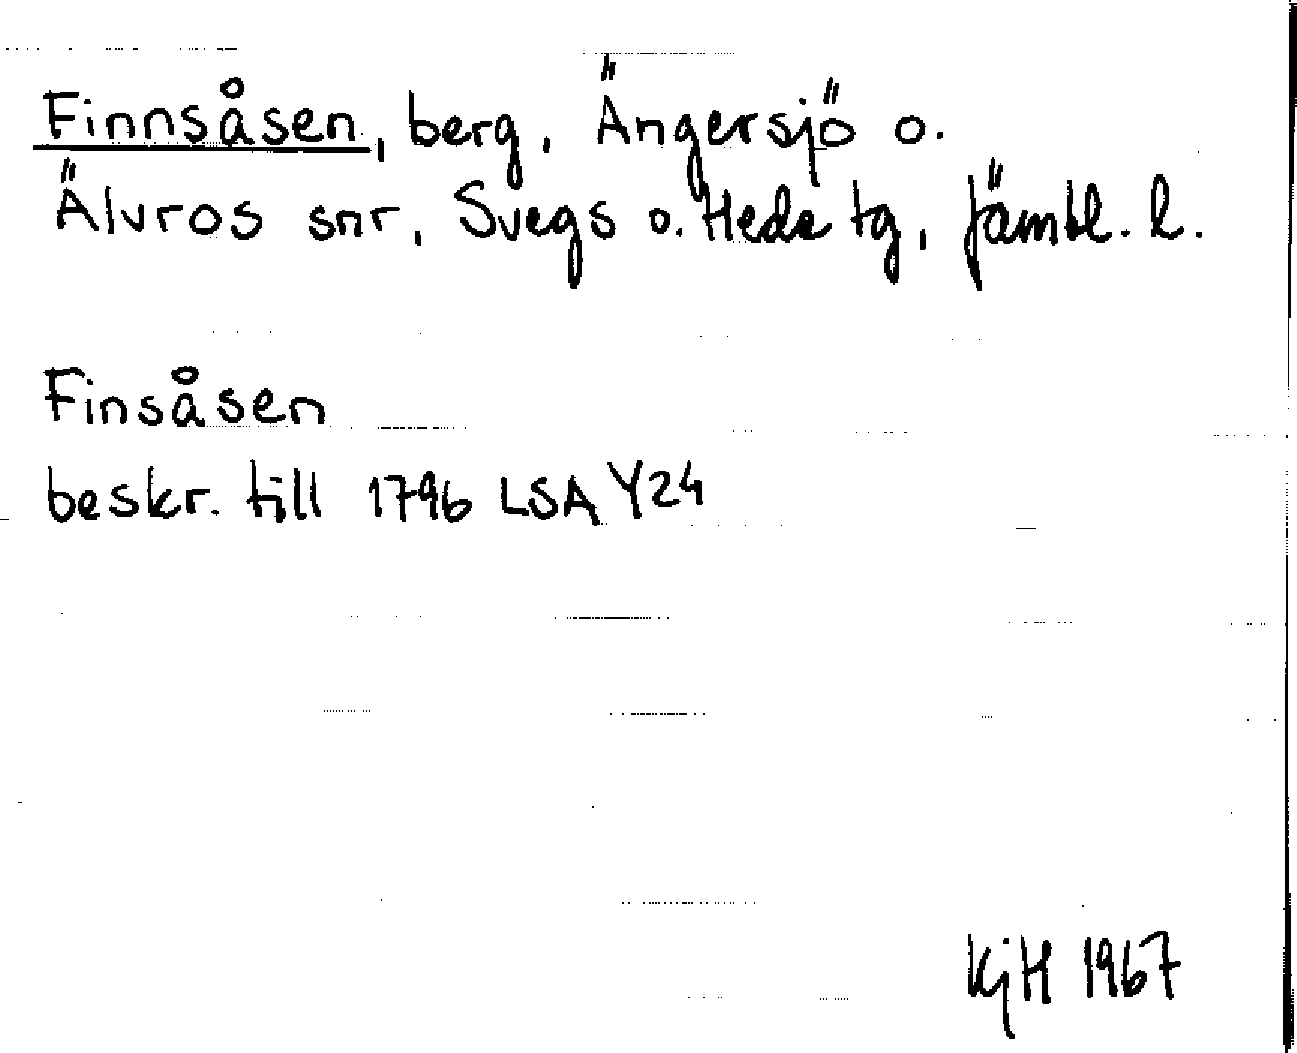 Finnsåsen, berg, Ängersjö o.
Älvros snr, Svegs o. Hede tg, Jämtl. l.
Finsåsen
beskr. till 1796 LSA Y24
KjH 1967